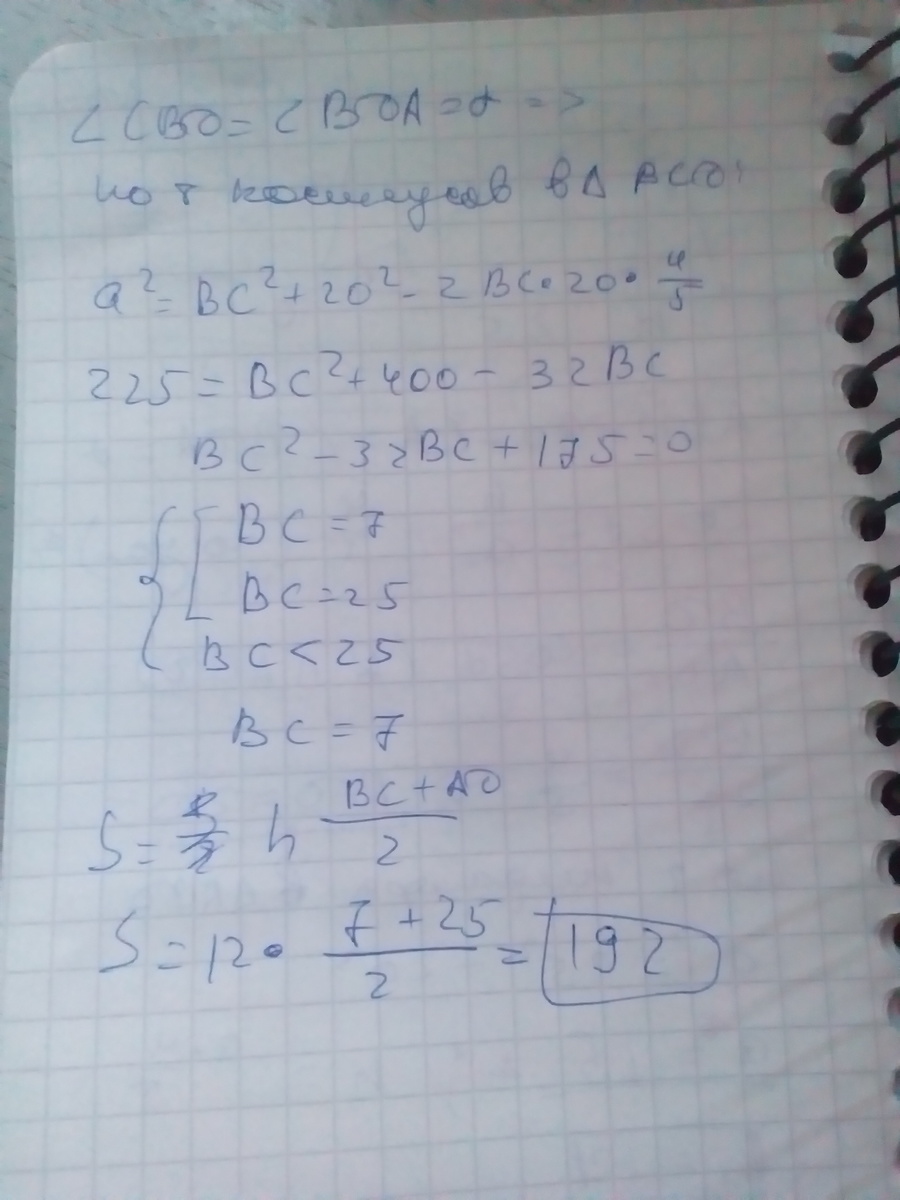 ∠CBD = ∠BDA = α =>
по т косинусов в Δ BCD:
a² = BC² + 20² - 2BC·20·4/5
225 = BC² + 400 - 32BC
BC² - 32BC + 175 = 0
{ [ BC = 7
BC = 25
BC < 25
BC = 7
S = h (BC + AD)/2
S = 12 · (7 + 25)/2 = 192